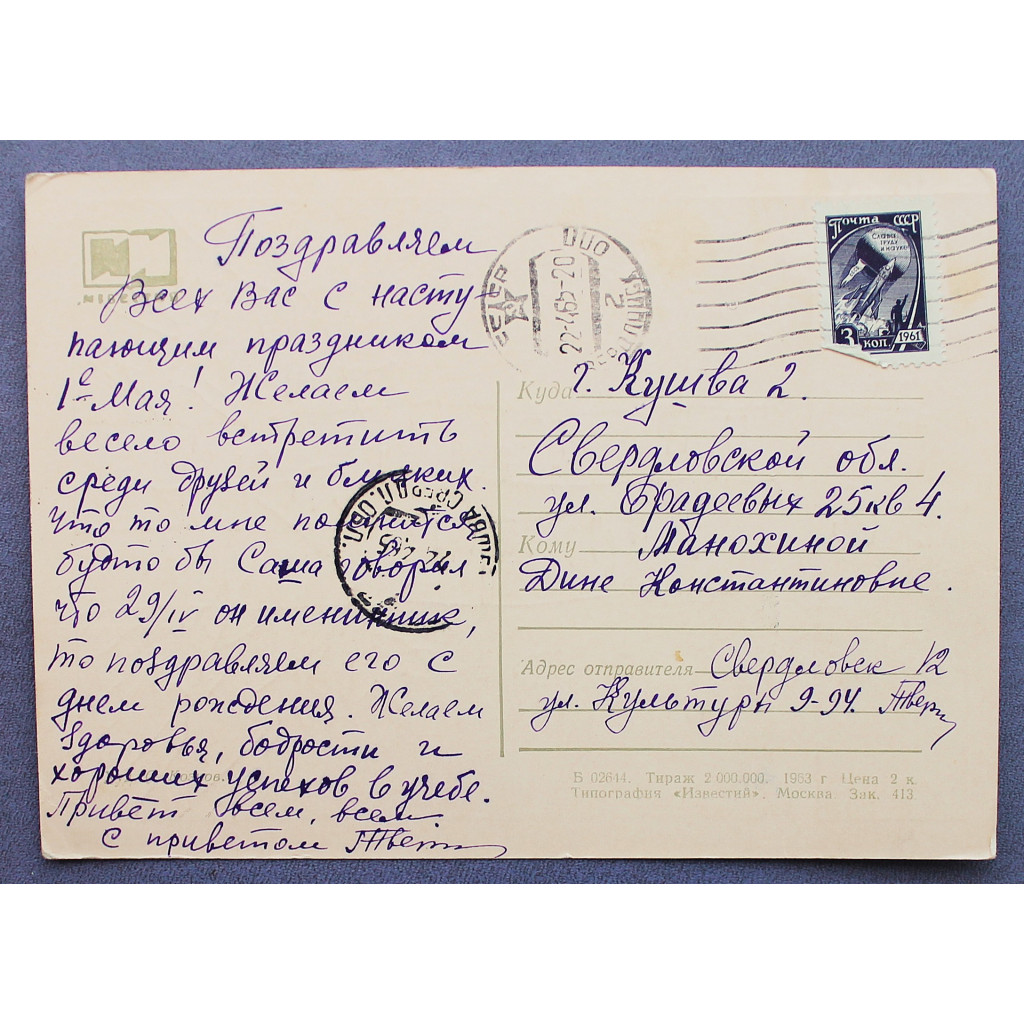 Поздравляем
Всех Вас с насту-
пающим праздником
1е Мая! Желаем
весело встретить
среди друзей и близких.
Что то мне помнится
будто бы Саша говорил
что 29/IV он именинник,
то поздравляем его с
днем рождения. Желаем
здоровья, бодрости и
хороших успехов в учебе.
Привет всем, всем.
С приветом
ПОЧТА СССР
СЛАВА
ТРУДУ
И НАУКЕ
3 КОП. 1961
2
22-465-20
Куда г. Кушва 2.
Свердловской обл.
ул. Фадеевых 25 кв 4.
Кому Манохиной
Дине Константиновне.
Адрес отправителя Свердловск 12
ул. Культуры 9-94.
Б 02644. Тираж 2 000.000. 1963 г Цена 2 к.
Типография «Известий». Москва Зак. 413.